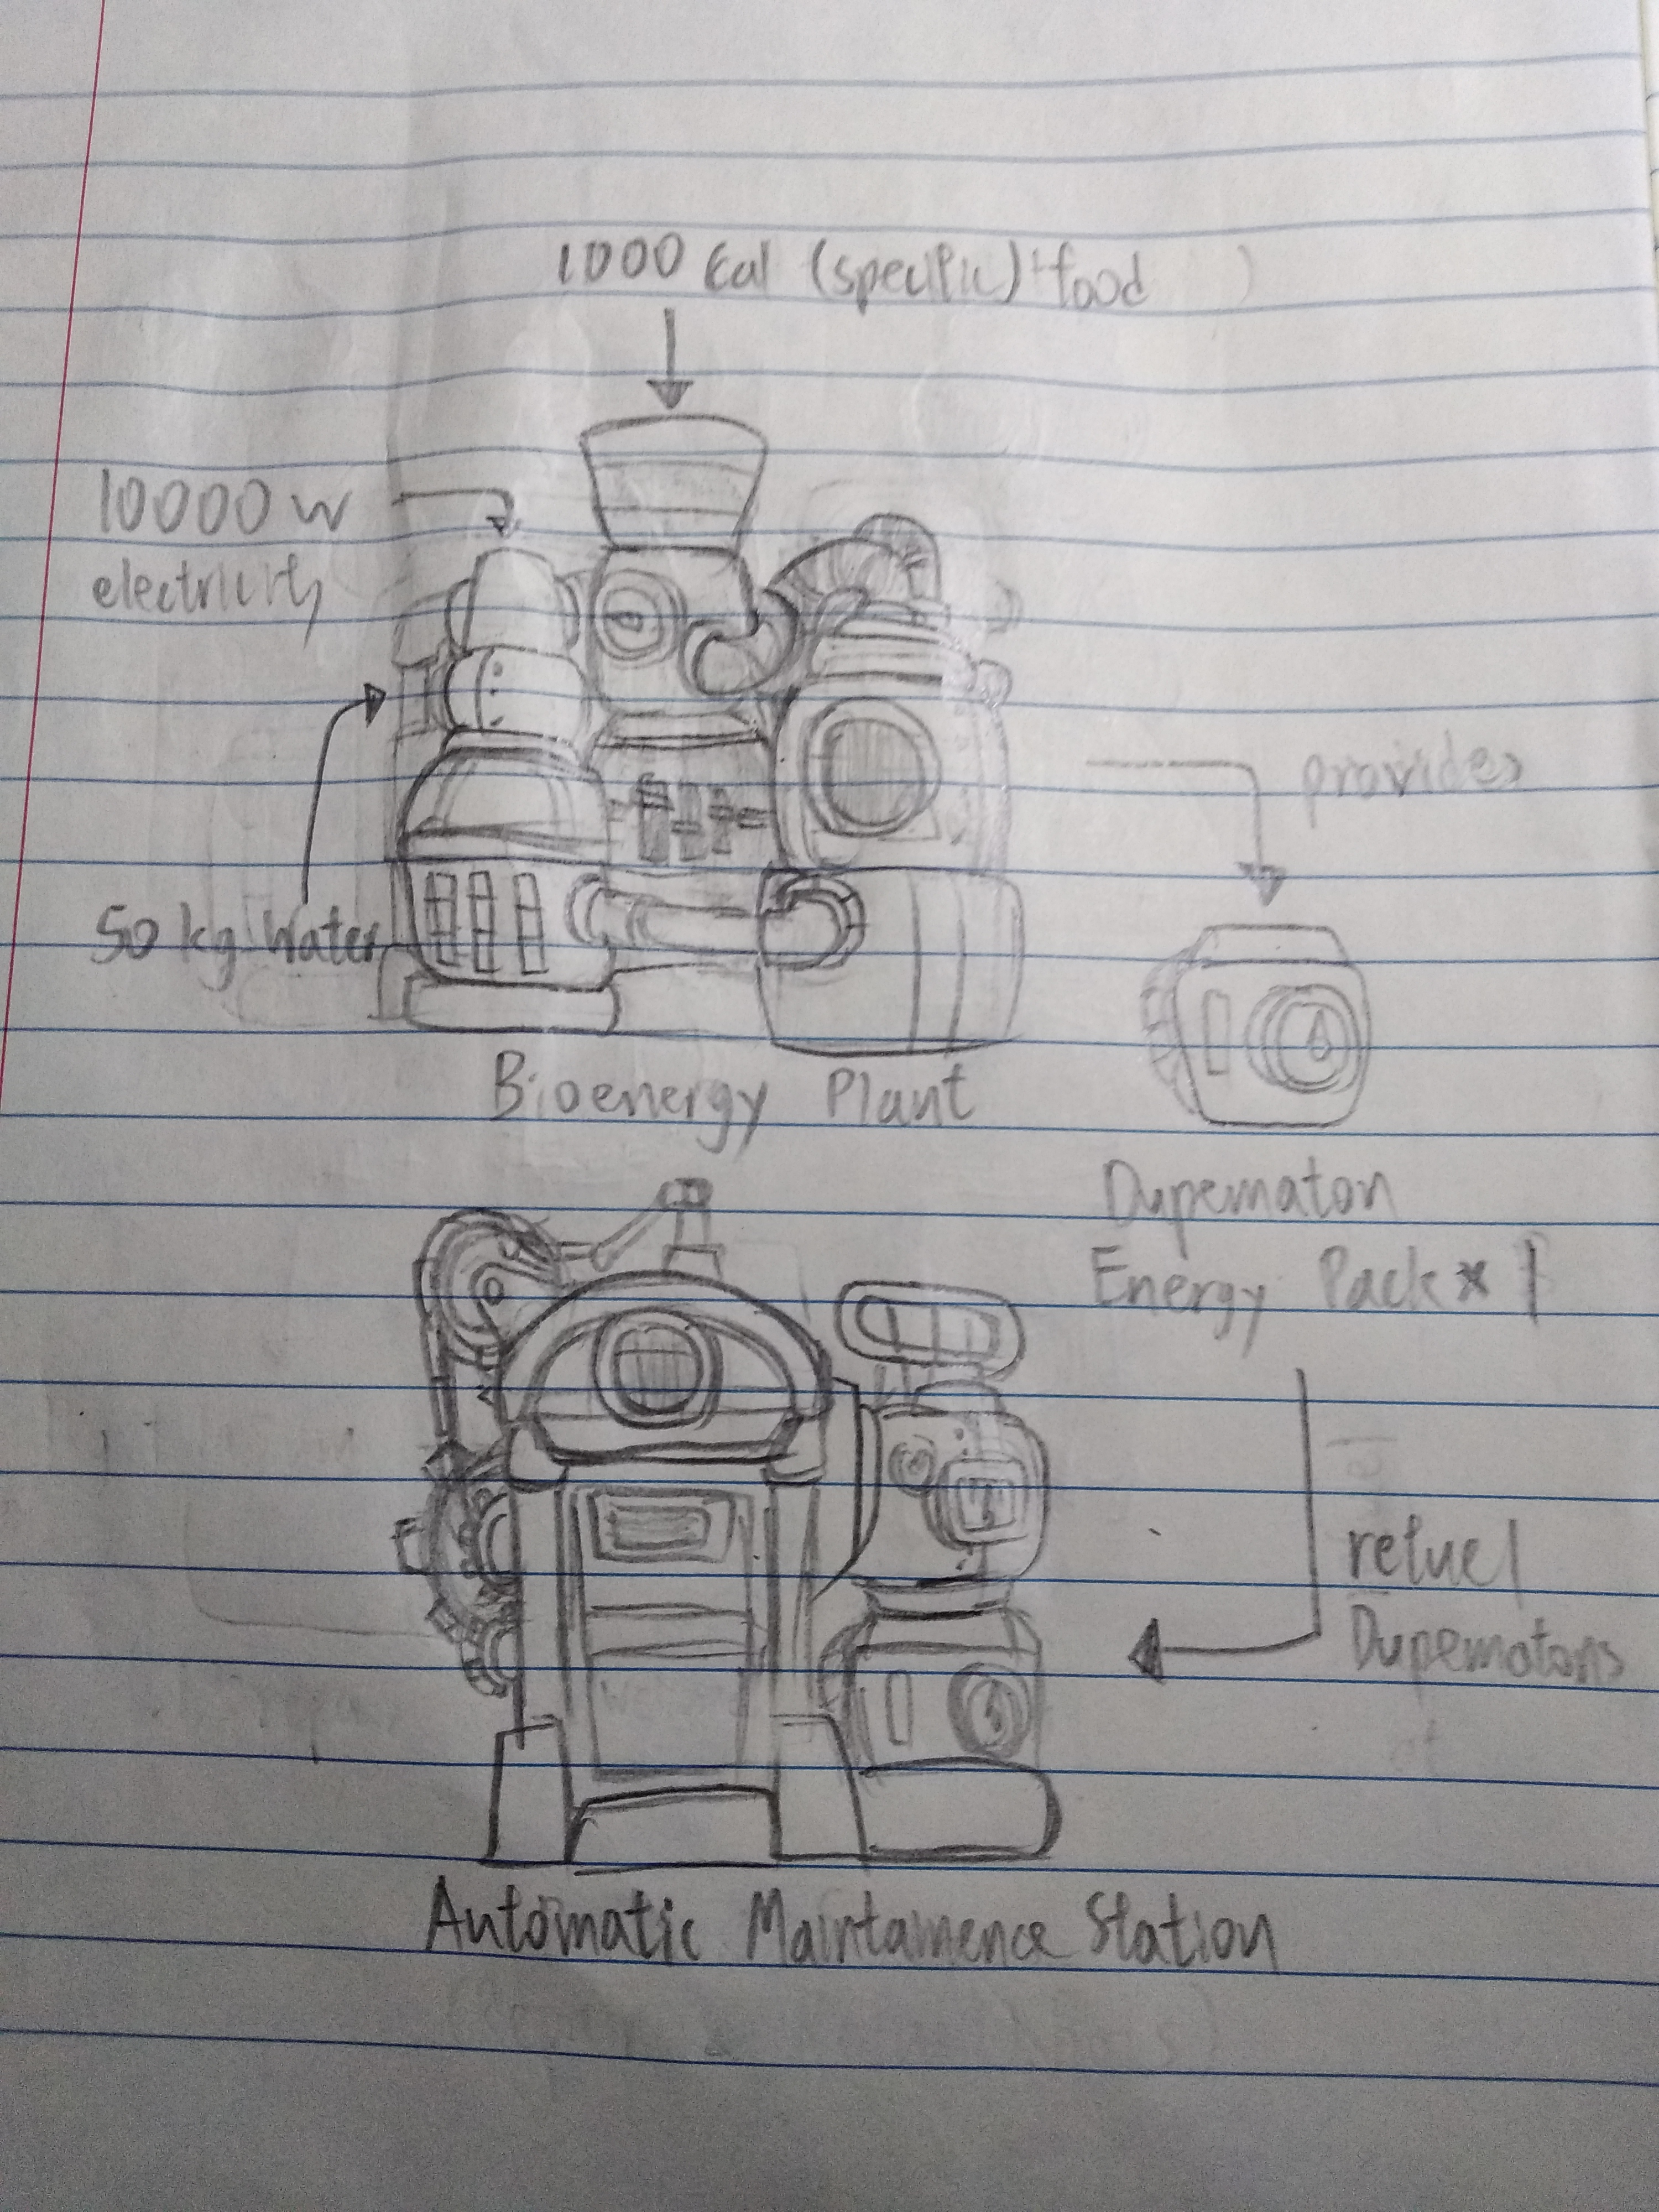 1000 Cal (specific) food
10000 w
electricity
50 kg Water
provides
Bioenergy Plant
Dupematon
Energy Pack x 1
refuel
Dupematons
Automatic Maintainence Station